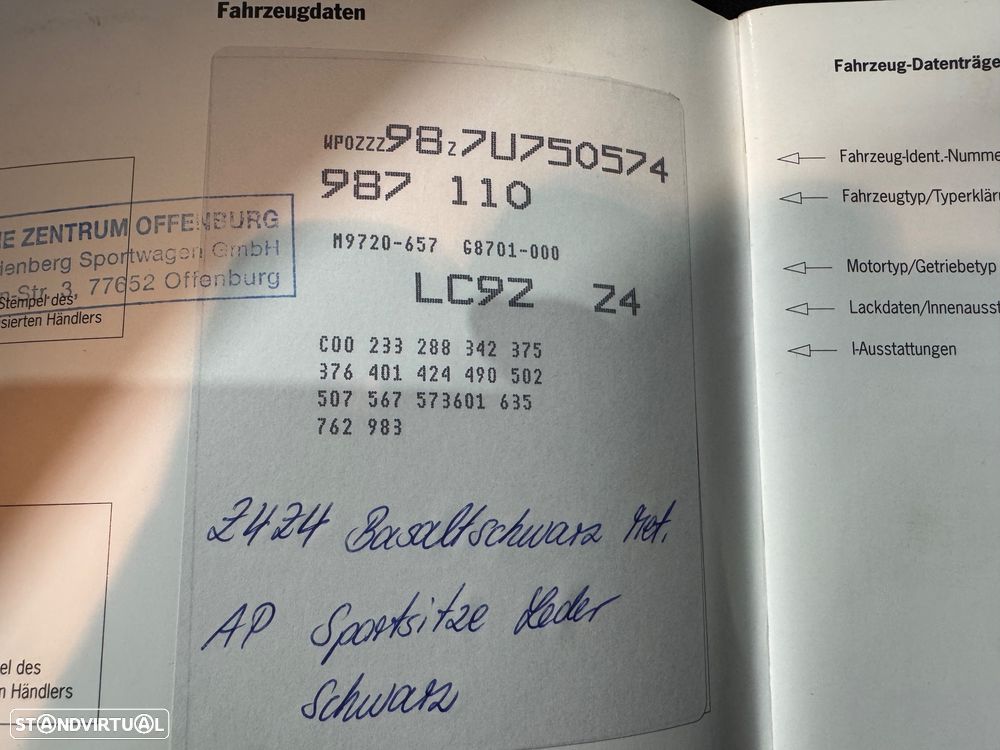 Fahrzeugdaten
WPOZZZ98Z7U750574
987 110
M9720-657 G8701-000
LC9Z Z4
C00 233 288 342 375
376 401 424 490 502
507 567 573601 635
762 983
Z4Z4 Basaltschwarz Met.
AP Sportsitze Leder
Schwarz
ZENTRUM OFFENBURG
Sportwagen GmbH
3, 77652 Offenburg
Stempel des
Händlers
des
Händlers
Fahrzeug-Datenträge
Fahrzeug-Ident.-Numme
Fahrzeugtyp/Typerkläru
Motortyp/Getriebetyp
Lackdaten/Innenausst
I-Ausstattungen
STANDVIRTUAL